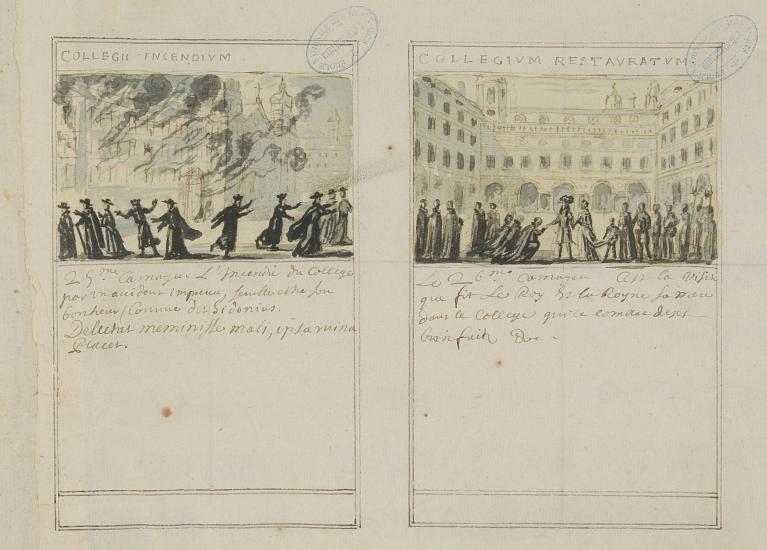 COLLEGII INCENDIVM
25me Camayeu L'Incendie du College
par un accident impreveu, semble estre son
bonheur, Comme dit Sidonius.
Delectat meminisse mali, ipsa ruina
Placet.
COLLEGIVM RESTAVRATVM
Le 26me Camayeu Est la Visite
que fit Le Roy & la Royne sa mere
dans le College qu'il comble de ses
bien faits